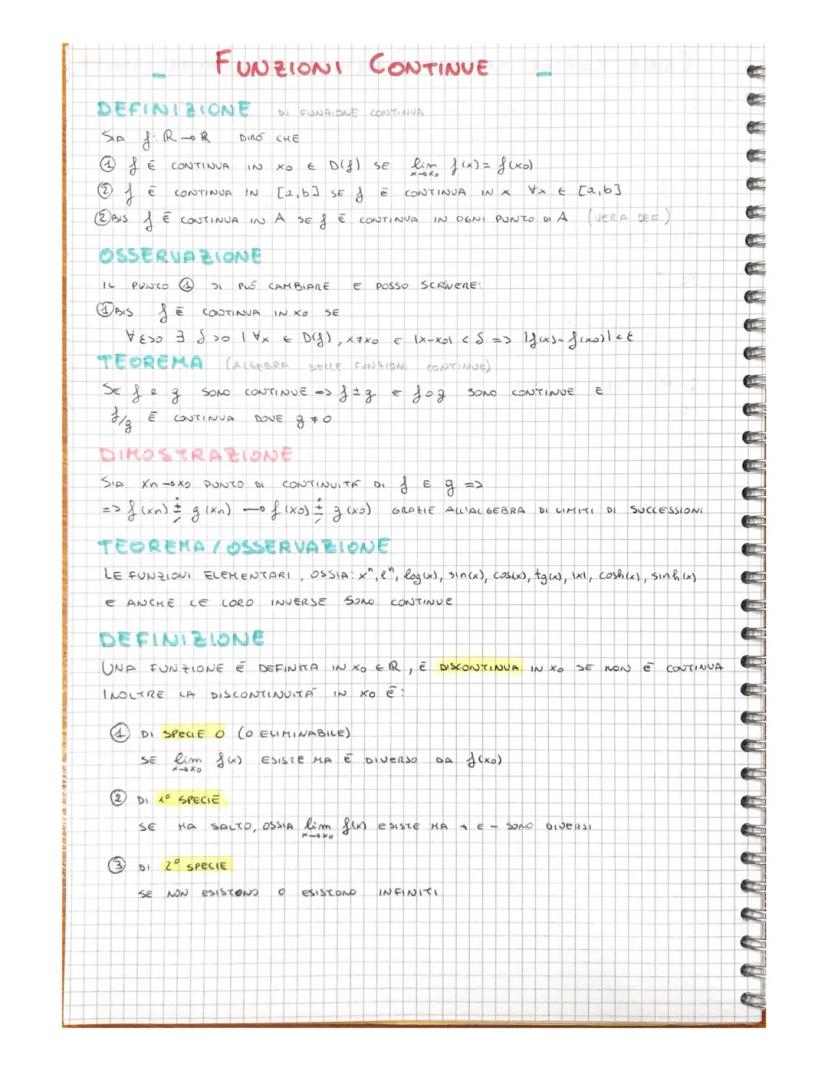 FUNZIONI CONTINUE
DEFINIZIONE DI FUNZIONE CONTINUA
SIA f: R → R DIRÒ CHE
① f È CONTINUA IN x0 ∈ D(f) SE lim x→x0 f(x) = f(x0)
② f È CONTINUA IN [a,b] SE f È CONTINUA IN x ∀x ∈ [a,b]
②BIS f È CONTINUA IN A SE f È CONTINUA IN OGNI PUNTO DI A (VERA DEF)
OSSERVAZIONE
IL PUNTO ① SI PUÓ CAMBIARE E POSSO SCRIVERE:
①BIS f È CONTINUA IN X0 SE
∀ε>0 ∃ δ>0 | ∀x ∈ D(f), x≠x0 e |x-x0| < δ => |f(x)-f(x0)| < ε
TEOREMA (ALGEBRA DELLE FUNZIONI CONTINUE)
SE f e g SONO CONTINUE => f±g e f∘g SONO CONTINUE E
f/g È CONTINUA DOVE g ≠ 0
DIMOSTRAZIONE
SIA Xn → X0 PUNTO DI CONTINUITÀ DI f E g =>
=> f(xn) ∸± / g(xn) → f(x0) ∸± / g(x0) GRAZIE ALL'ALGEBRA DI LIMITI DI SUCCESSIONI
TEOREMA / OSSERVAZIONE
LE FUNZIONI ELEMENTARI, OSSIA: xⁿ, eⁿ, log(x), sin(x), cos(x), tg(x), |x|, cosh(x), sinh(x)
E ANCHE LE LORO INVERSE SONO CONTINUE
DEFINIZIONE
UNA FUNZIONE È DEFINITA IN X0 ∈ R, È DISCONTINUA IN X0 SE NON È CONTINUA
INOLTRE LA DISCONTINUITÀ IN X0 È:
① DI SPECIE 0 (O ELIMINABILE)
SE lim x→x0 f(x) ESISTE MA È DIVERSO DA f(x0)
② DI 1° SPECIE
SE HA SALTO, OSSIA lim x→x0 f(x) ESISTE MA + E - SONO DIVERSI
③ DI 2° SPECIE
SE NON ESISTONO O ESISTONO INFINITI